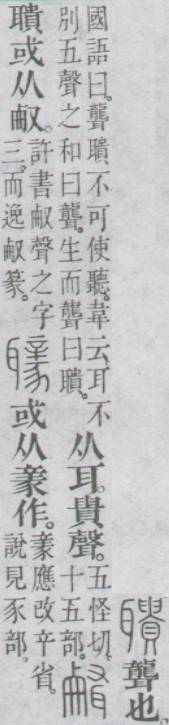 聵聾也。
國語曰。聾聵不可使聽。韋云。耳不
別五聲之和曰聾。生而聾曰聵。
从耳。貴聲。
五怪切。
十五部。
聵或从㕟。
許書㕟聲之字
三。而逸㕟篆。
或从豙作。
豙應改辛省。
說見豕部。